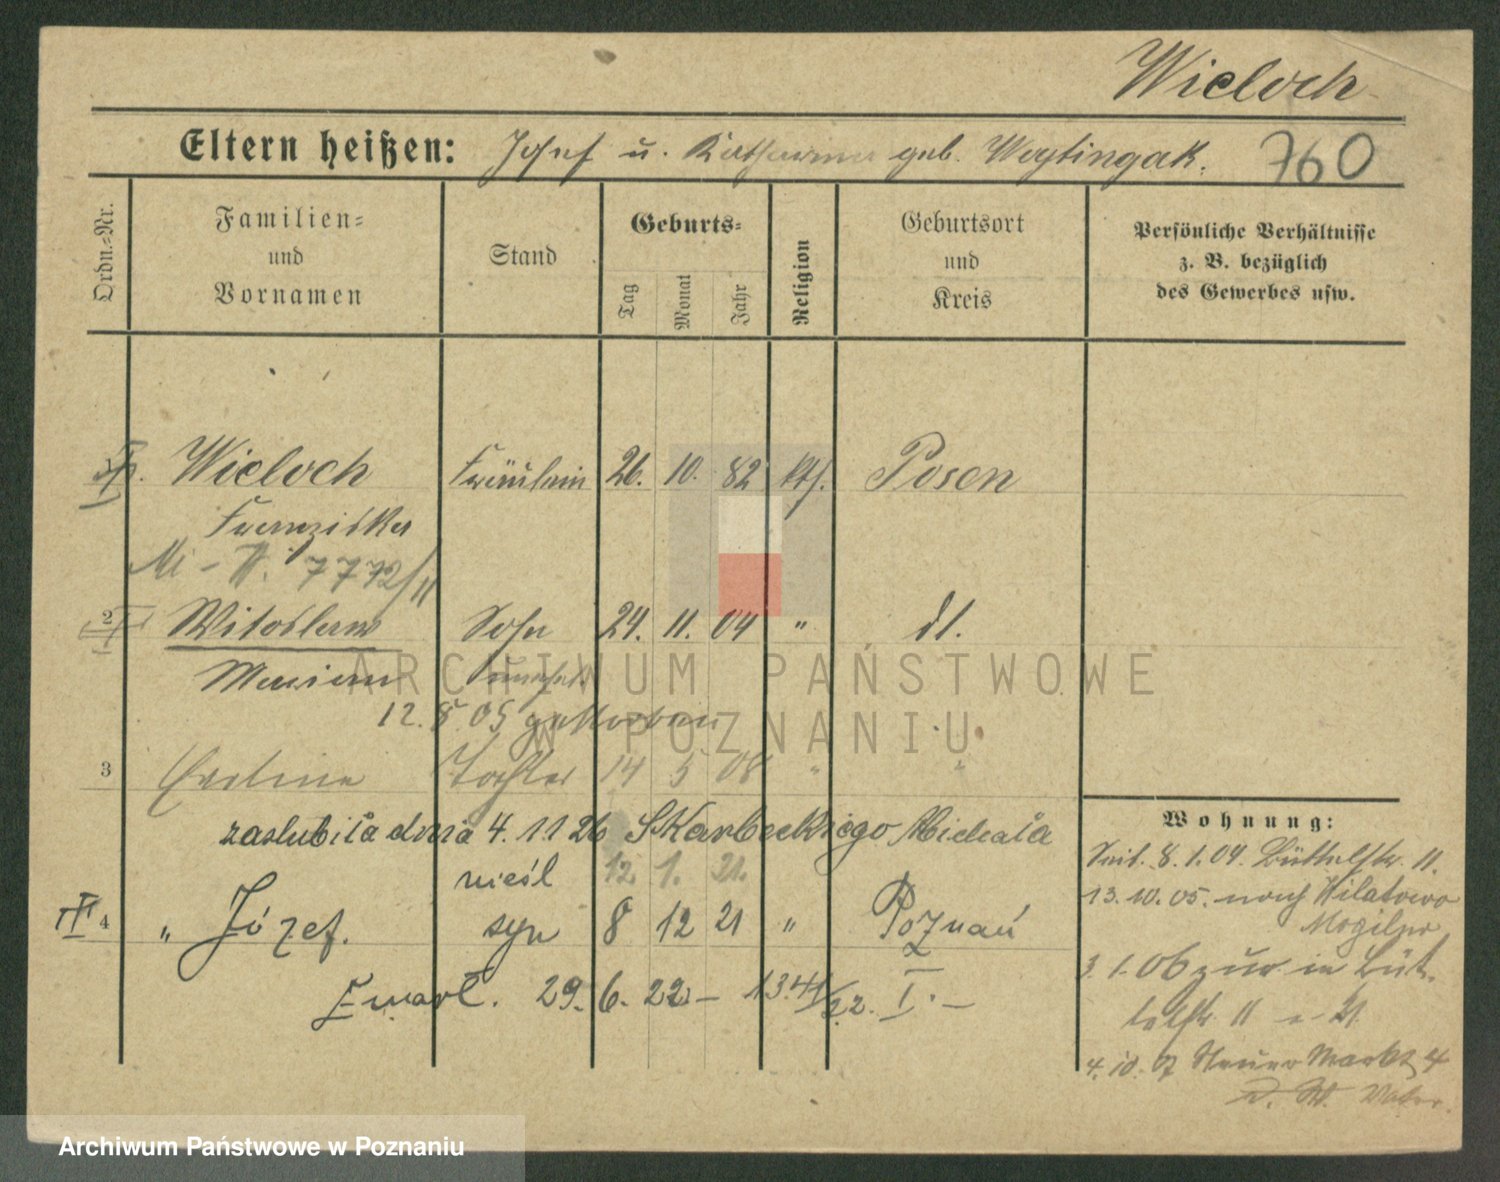 Wieloch
Eltern heißen: Josef u. Katharina geb. Woytingak. 760
Ordn.=Nr.
Familien=
und
Vornamen
Stand
Geburts=
Tag
Monat
Jahr
Religion
Geburtsort
und
Kreis
Persönliche Verhältnisse
z. B. bezüglich
des Gewerbes usw.
Wieloch Fräulein 26. 10. 82 kth. Posen
Franziska
7772/11
2 Witoslaw Sohn 24. 11. 04 " dt.
Marian unehel.
12. 8. 05 gestorben
3 Tochter 14 5 08 " "
zaślubiła dnia 4. 11 26 Skarbeckiego Michała
nieśl 12 1. 21.
4 " Józef. syn 8 12 21 " Poznań
Zmarł. 29. 6. 22 – 1341/22. I. –
Wohnung:
Seit. 8. 1. 04. Büttelstr. 11.
13. 10. 05. nach Hilatowo
Mogilno
3. 1. 06 zur. in Büt-
telstr. 11
4. 10. 07 Neuer Markt 4
Vater.
ARCHIWUM PAŃSTWOWE
W POZNANIU
Archiwum Państwowe w Poznaniu